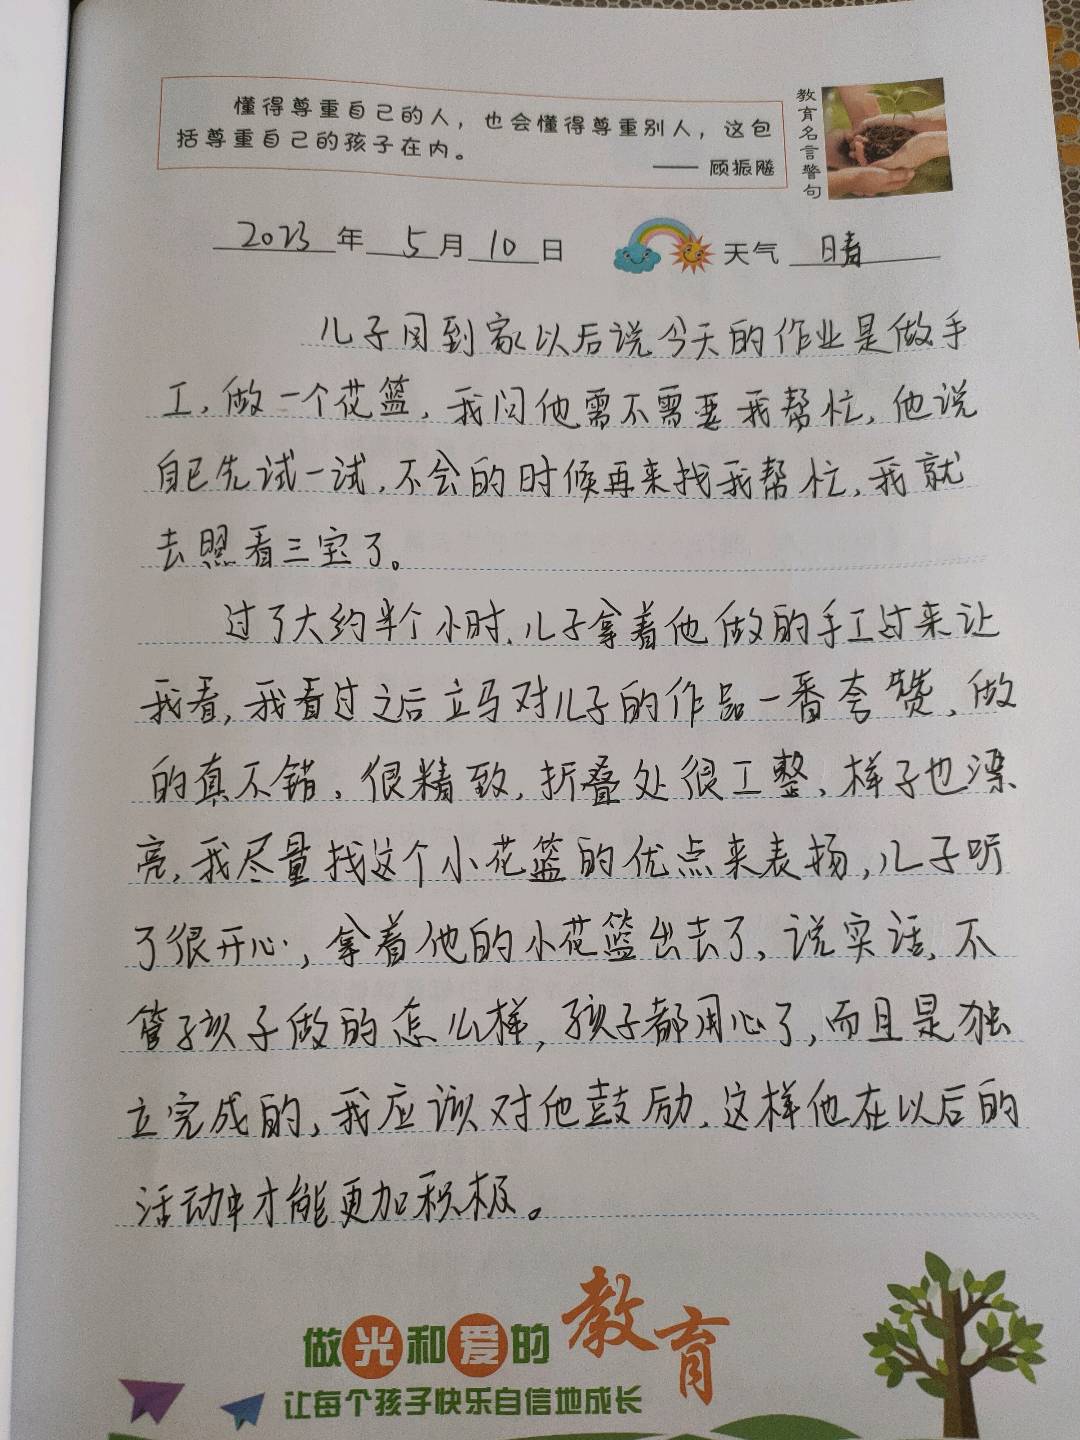 懂得尊重自己的人，也会懂得尊重别人，这包
括尊重自己的孩子在内。
—— 顾振飚
教育名言警句
2023年 5月 10日 天气 晴
儿子回到家以后说今天的作业是做手
工，做一个花篮，我问他需不需要我帮忙，他说
自己先试一试，不会的时候再来找我帮忙，我就
去照看三宝了。
过了大约半个小时，儿子拿着他做的手工过来让
我看，我看过之后立马对儿子的作品一番夸赞，做
的真不错，很精致，折叠处很工整，样子也漂
亮，我尽量找这个小花篮的优点来表扬，儿子听
了很开心，拿着他的小花篮出去了，说实话，不
管孩子做的怎么样，孩子都用心了，而且是独
立完成的，我应该对他鼓励，这样他在以后的
活动中才能更加积极。
做光和爱的教育
让每个孩子快乐自信地成长